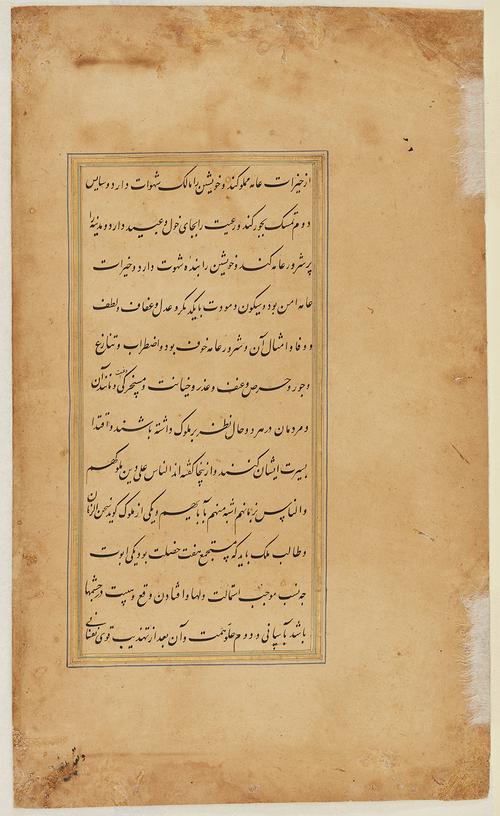 از خیرات عامه مملو کند و خویشتن را مالک شهوات دارد و سایس
دوم تمسک بجور کند و رعیت را بجای خول و عبید دارد و مدینه را
پر شرور عامه کند و خویشتن را بنده شهوت دارد و خیرات
عامه امن بود و سکون و مودت با یکدیگر و عدل و عفاف و لطف
و وفا و امثال آن و شرور عامه خوف بود و اضطراب و تنازع
و جور و حرص و عنف و غدر و خیانت و مسخرگی و مانند آن
و مردمان در هر دو حال نظر بر ملوک داشته باشند و اقتدا
بسیرت ایشان کنند و ازینجا گفته اند الناس علی دین ملوکهم
و الناس بزمانهم اشبه منهم بآبائهم و یکی از ملوک گوید نحن الزمان
و طالب ملک باید که مستجمع هفت خصلت بود یکی ابوت
چه نسب موجب استمالت دلها و افتادن وقع و هیبت در چشمها
باشد بآسانی و دوم علو همت و آن بعد از تهذیب قوی نفسانی